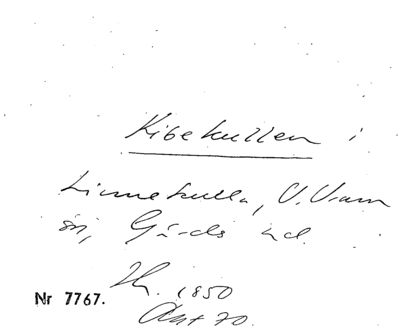 Kibekullen i
Linnekulla, V. Vram
sn, Gärds hd.
1850
Akt 70.
Nr 7767.